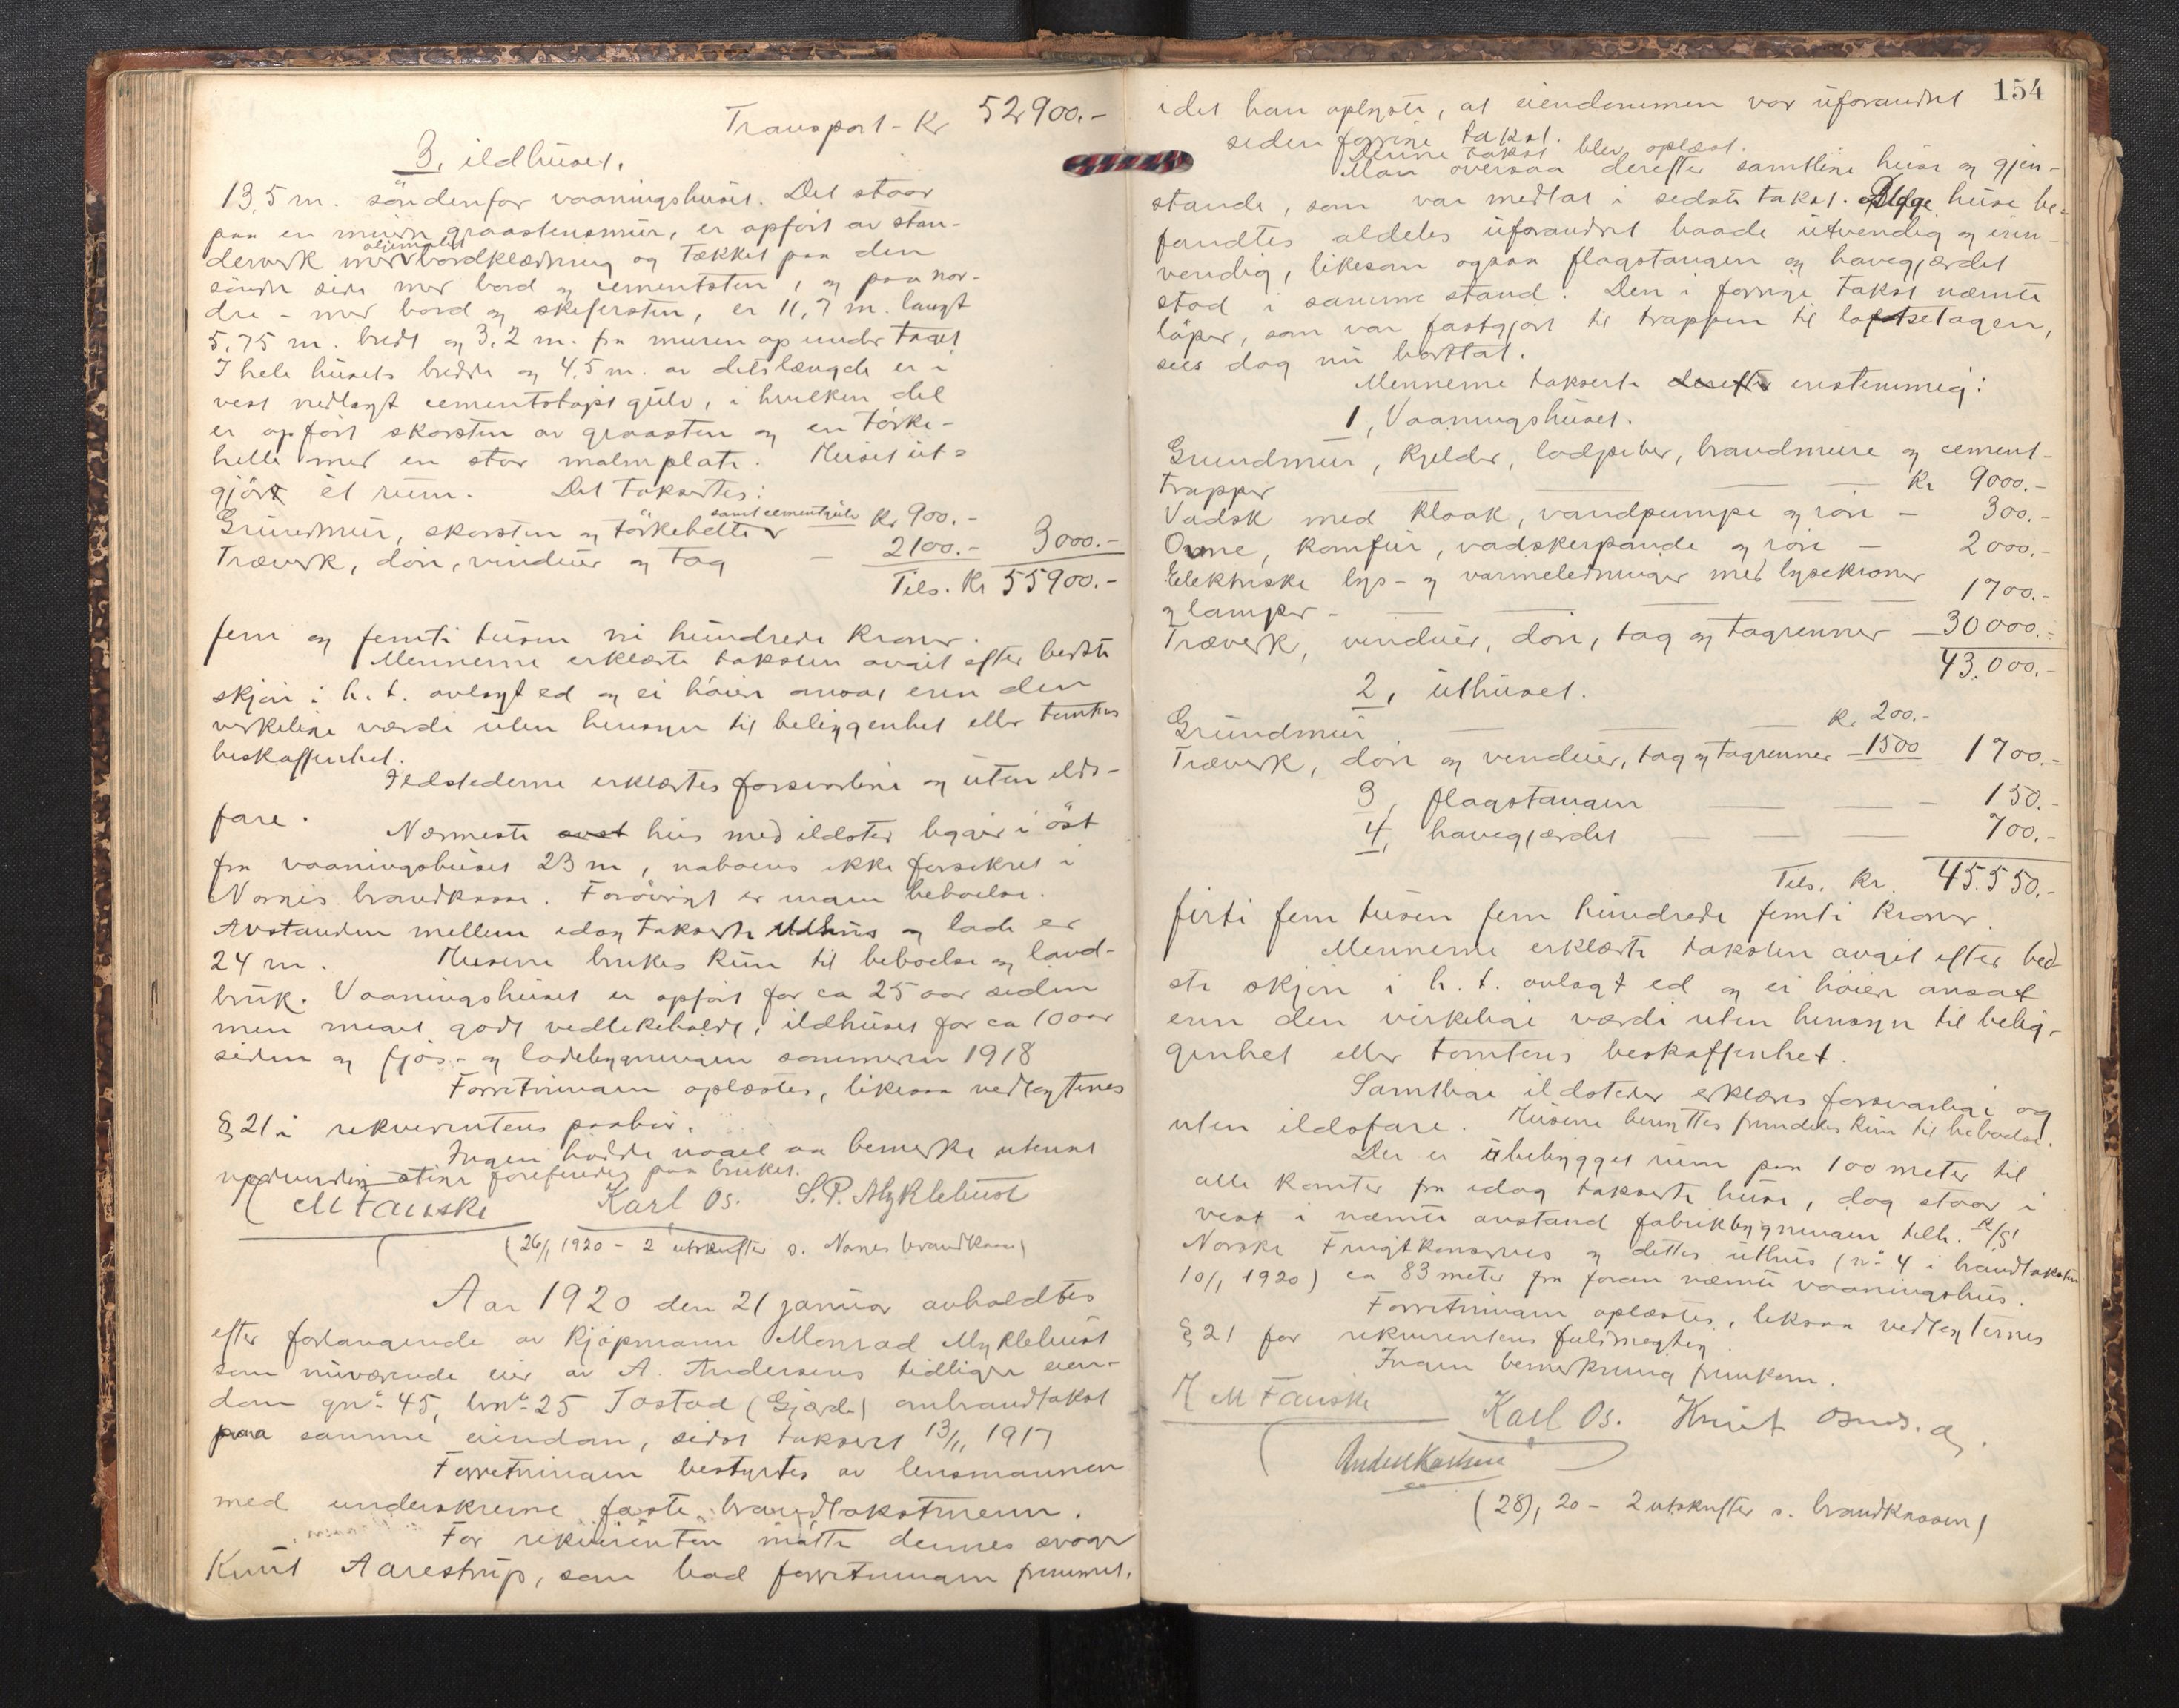 Transport - Kr 52900.-
3, ildhuset.
13,5 m. söndenfor vaaningshuset. Det staar
paa en muret graastensmur, er opfört av stén-
derverk med oljemalet bordklædning og tækket paa den
söndre side med bord og cementsten, og paa nor-
dre - med bord og skifersten, er 11,7 m. langt
5,75 m. bredt og 3,2 m. fra muren op under taget
I hele husets bredde og 4,5 m. av dets længde er i
vest nedlagt cementstöpt gulv, i hvilken del
er opfört skorsten av graasten og en törke-
helle med en stor malmplate. Huset ut-
gjör et rum. Det takseres:
Grundmur, skorsten og törkehelle samt cementgulv Kr 900.-
Træverk, döre, vinduer og tag - 2100.- 3000.-
Tils. Kr 55900.-
fem og femti tusen ni hundrede kroner.
Mennerne erklærte taksten avgit efter bedste
skjön i h. t. avlagt ed og ei höiere ansat enn den
virkelige værdi uten hensyn til beliggenhet eller tomtens
beskaffenhet.
Ildstederne erklærtes forsvarlige og uten ilds-
fare.
Nærmeste hus med ildsted ligger i öst
fra vaaningshuset 23 m, naboens ikke forsikret i
Norges brandkasse. Forövrigt er ingen beboelse.
Avstanden mellem idag takserte ildhus og lade er
24 m. Husene brukes kun til beboelse og land-
bruk. Vaaningshuset er opfört for ca 25 aar siden
men meget godt vedlikeholdt, ildhuset for ca 10 aar
siden og fjös- og ladebygningen sommeren 1918
Forretningen oplæstes, likesaa vedtægternes
§ 21 i rekvirentens paahör.
Ingen hadde noget aa bemerke utenat
nödvendig stige forefindes paa bruket.
M Fauske Karl Os. S. P. Myklebust
(26/1 1920 - 2 utskrifter s. Norges brandkasse)
Aar 1920 den 21 januar avholdtes
efter forlangende av kjöpmann Monrad Myklebust
som nuværende eier av A. Andersens tidligere eien-
dom gnr. 45, brnr. 25 Tostad (Gjærde) ombrandtakst
paa samme eiendom, sidst taksert 13/11 1917
Forretningen bestyrtes av lensmannen
med underskrevne faste brandtakstmenn.
For rekvirenten mötte dennes svoger
Knut Aarestrup, som bad forretningen fremmet,
154
idet han oplyste, at eiendommen var uforandret
siden forrige takst.
Denne takst blev oplæst.
Man oversaa derefter samtlige huse og gjen-
stande, som var medtat i sidste takst. Begge huse be-
fandtes aldeles uforandret baade utvendig og inn-
vendig, likesom ogsaa flagstangen og havegjærdet
stod i samme stand. Den i forrige takst nævnte
löper, som var fastgjort til trappen til loftsetagen,
sees dog nu borttat.
Mennerne takserte derefter enstemmig:
1, Vaaningshuset.
Grundmur, kjelder, lodpiber, brandmure og cement-
trapper — — — Kr 9000.-
Vadsk med kloak, vandpumpe og rör - 300.-
Ovne, komfur, vadskerpande og rör - 2000.-
Elektriske lys- og varmeledninger med lysekroner
og lamper - — — — 1700.-
Træverk, vinduer, döre, tag og tagrenner — 30000.-
43.000.-
2, uthuset.
Grundmur — — — Kr 200.-
Træverk, döre og vinduer, tag og tagrenner — 1500 1700.-
3, flagstangen — — - 150.-
4, havegjærdet — — — 700.-
Tils. Kr. 45.550.-
firti fem tusen fem hundrede femti kroner.
Mennerne erklærte taksten avgit efter bed-
ste skjön i h. t. avlagt ed og ei höiere ansat
enn den virkelige værdi uten hensyn til belig-
genhet eller tomtens beskaffenhet.
Samtlige ildsteder erklæres forsvarlige og
uten ildsfare. Husene benyttes fremdeles kun til beboelse.
Der er ubebygget rum paa 100 meter til
alle kanter fra idag takserte huse, dog staar i
vest i nævnte avstand fabrikbygningen tilh. A/S
Norske Frugtkonserves og dettes uthus (nr. 4 i brandtaksten
10/1 1920) ca 83 meter fra foran nævnte vaaningshus.
Forretningen oplæstes, likesaa vedtægternes
§ 21 for rekvirentens fuldmegtig
Ingen bemerkning fremkom.
M Fauske Karl Os. Knut
Anders Karlsen
(28/1 20 - 2 utskrifter s. brandkassen)